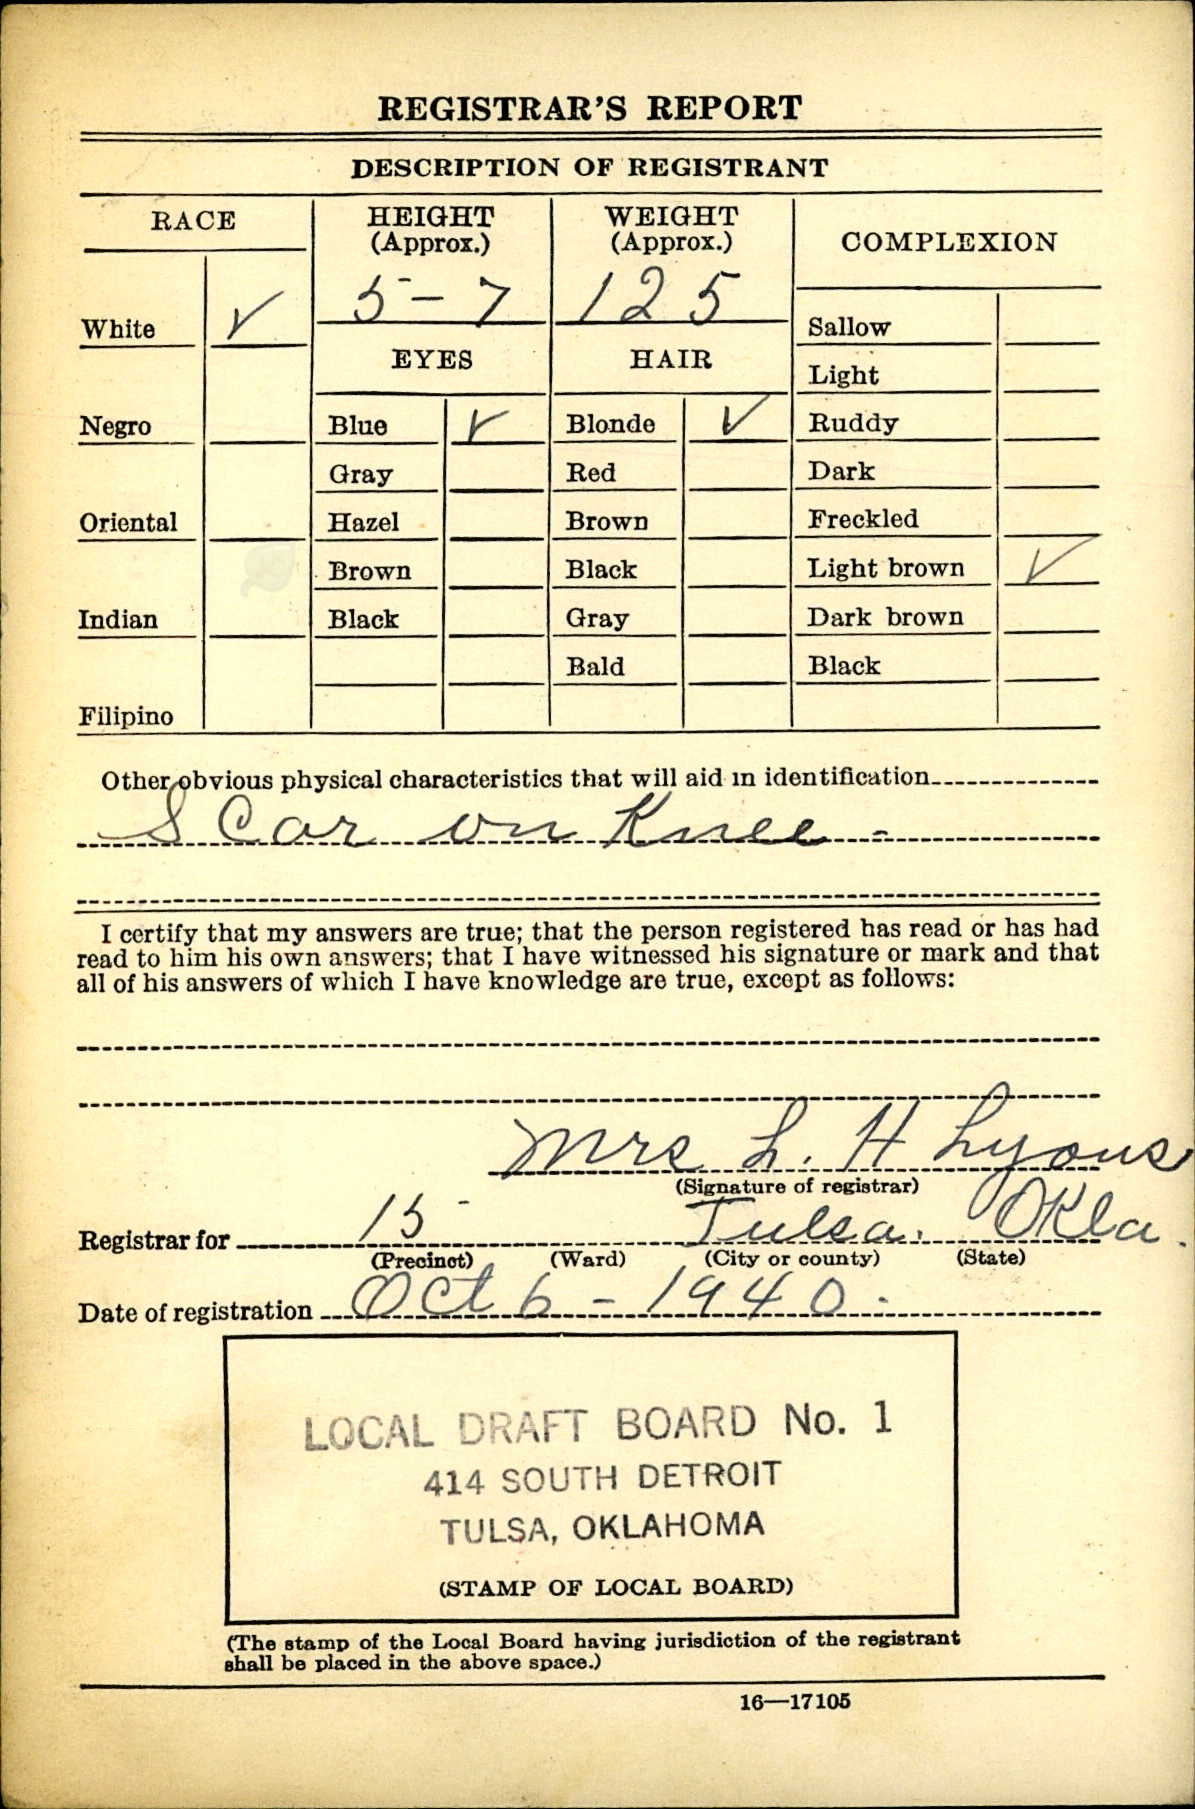 REGISTRAR'S REPORT
DESCRIPTION OF REGISTRANT
RACE
HEIGHT
(Approx.)
WEIGHT
(Approx.)
COMPLEXION
5-7
125
White ✓
Sallow
EYES
HAIR
Light
Negro
Blue ✓
Blonde ✓
Ruddy
Gray
Red
Dark
Oriental
Hazel
Brown
Freckled
Brown
Black
Light brown ✓
Indian
Black
Gray
Dark brown
Bald
Black
Filipino
Other obvious physical characteristics that will aid in identification
SCar on Knee -
I certify that my answers are true; that the person registered has read or has had
read to him his own answers; that I have witnessed his signature or mark and that
all of his answers of which I have knowledge are true, except as follows:
Mrs L. H Lyons
(Signature of registrar)
Registrar for 15 Tulsa. Okla.
(Precinct) (Ward) (City or county) (State)
Date of registration Oct 6 - 1940.
LOCAL DRAFT BOARD No. 1
414 SOUTH DETROIT
TULSA, OKLAHOMA
(STAMP OF LOCAL BOARD)
(The stamp of the Local Board having jurisdiction of the registrant
shall be placed in the above space.)
16—17105